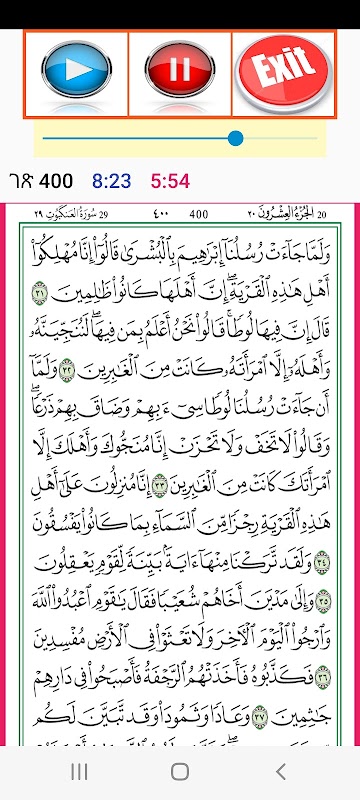 Exit
ገጽ 400 8:23 5:54
٢٩ سُورَةُ العَنكَبُوتِ 29 ٤٠٠ 400 الجُزْءُ العِشْرُونَ ٢٠ 20
وَلَمَّا جَآءَتْ رُسُلُنَآ إِبْرَٰهِيمَ بِٱلْبُشْرَىٰ قَالُوٓا۟ إِنَّا مُهْلِكُوٓا۟
أَهْلِ هَٰذِهِ ٱلْقَرْيَةِ ۖ إِنَّ أَهْلَهَا كَانُوا۟ ظَٰلِمِينَ ٣١
قَالَ إِنَّ فِيهَا لُوطًا ۚ قَالُوا۟ نَحْنُ أَعْلَمُ بِمَن فِيهَا ۖ لَنُنَجِّيَنَّهُۥ
وَأَهْلَهُۥٓ إِلَّا ٱمْرَأَتَهُۥ كَانَتْ مِنَ ٱلْغَٰبِرِينَ ٣٢ وَلَمَّآ
أَن جَآءَتْ رُسُلُنَا لُوطًا سِىٓءَ بِهِمْ وَضَاقَ بِهِمْ ذَرْعًا ۖ
وَقَالُوا۟ لَا تَخَفْ وَلَا تَحْزَنْ ۖ إِنَّا مُنَجُّوكَ وَأَهْلَكَ إِلَّا
ٱمْرَأَتَكَ كَانَتْ مِنَ ٱلْغَٰبِرِينَ ٣٣ إِنَّا مُنزِلُونَ عَلَىٰٓ أَهْلِ
هَٰذِهِ ٱلْقَرْيَةِ رِجْزًا مِّنَ ٱلسَّمَآءِ بِمَا كَانُوا۟ يَفْسُقُونَ
٣٤ وَلَقَد تَّرَكْنَا مِنْهَآ ءَايَةًۢ بَيِّنَةً لِّقَوْمٍ يَعْقِلُونَ
٣٥ وَإِلَىٰ مَدْيَنَ أَخَاهُمْ شُعَيْبًا فَقَالَ يَٰقَوْمِ ٱعْبُدُوا۟ ٱللَّهَ
وَٱرْجُوا۟ ٱلْيَوْمَ ٱلْءَاخِرَ وَلَا تَعْثَوْا۟ فِى ٱلْأَرْضِ مُفْسِدِينَ
٣٦ فَكَذَّبُوهُ فَأَخَذَتْهُمُ ٱلرَّجْفَةُ فَأَصْبَحُوا۟ فِى دَارِهِمْ
جَٰثِمِينَ ٣٧ وَعَادًا وَثَمُودَا۟ وَقَد تَّبَيَّنَ لَكُم